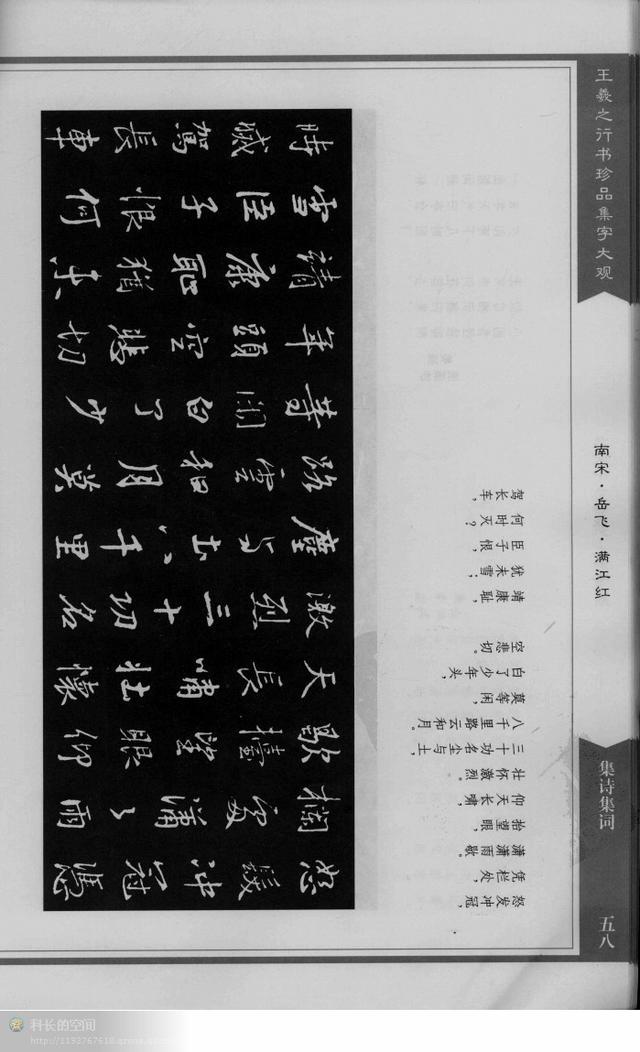 王羲之行书珍品集字大观
南宋·岳飞·满江红
集诗集词
五八
怒髮冲冠憑
欄處潇〻雨
歇擡望眼仰
天長嘯壯懷
激烈三十功名
塵与土八千里
路雲和月莫
等閑白了少
年頭空悲切
靖康耻猶未
雪臣子恨何
時滅駕長車
怒发冲冠，
凭栏处，
潇潇雨歇。
抬望眼，
仰天长啸，
壮怀激烈。
三十功名尘与土，
八千里路云和月。
莫等闲，
白了少年头，
空悲切。
靖康耻，
犹未雪；
臣子恨，
何时灭？
驾长车，
科长的空间